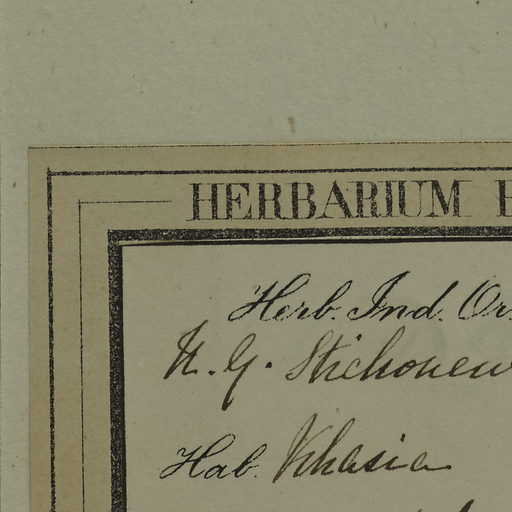 HERBARIUM
Herb. Ind. Or.
N. G. Stichoneu
Hab. Khasia